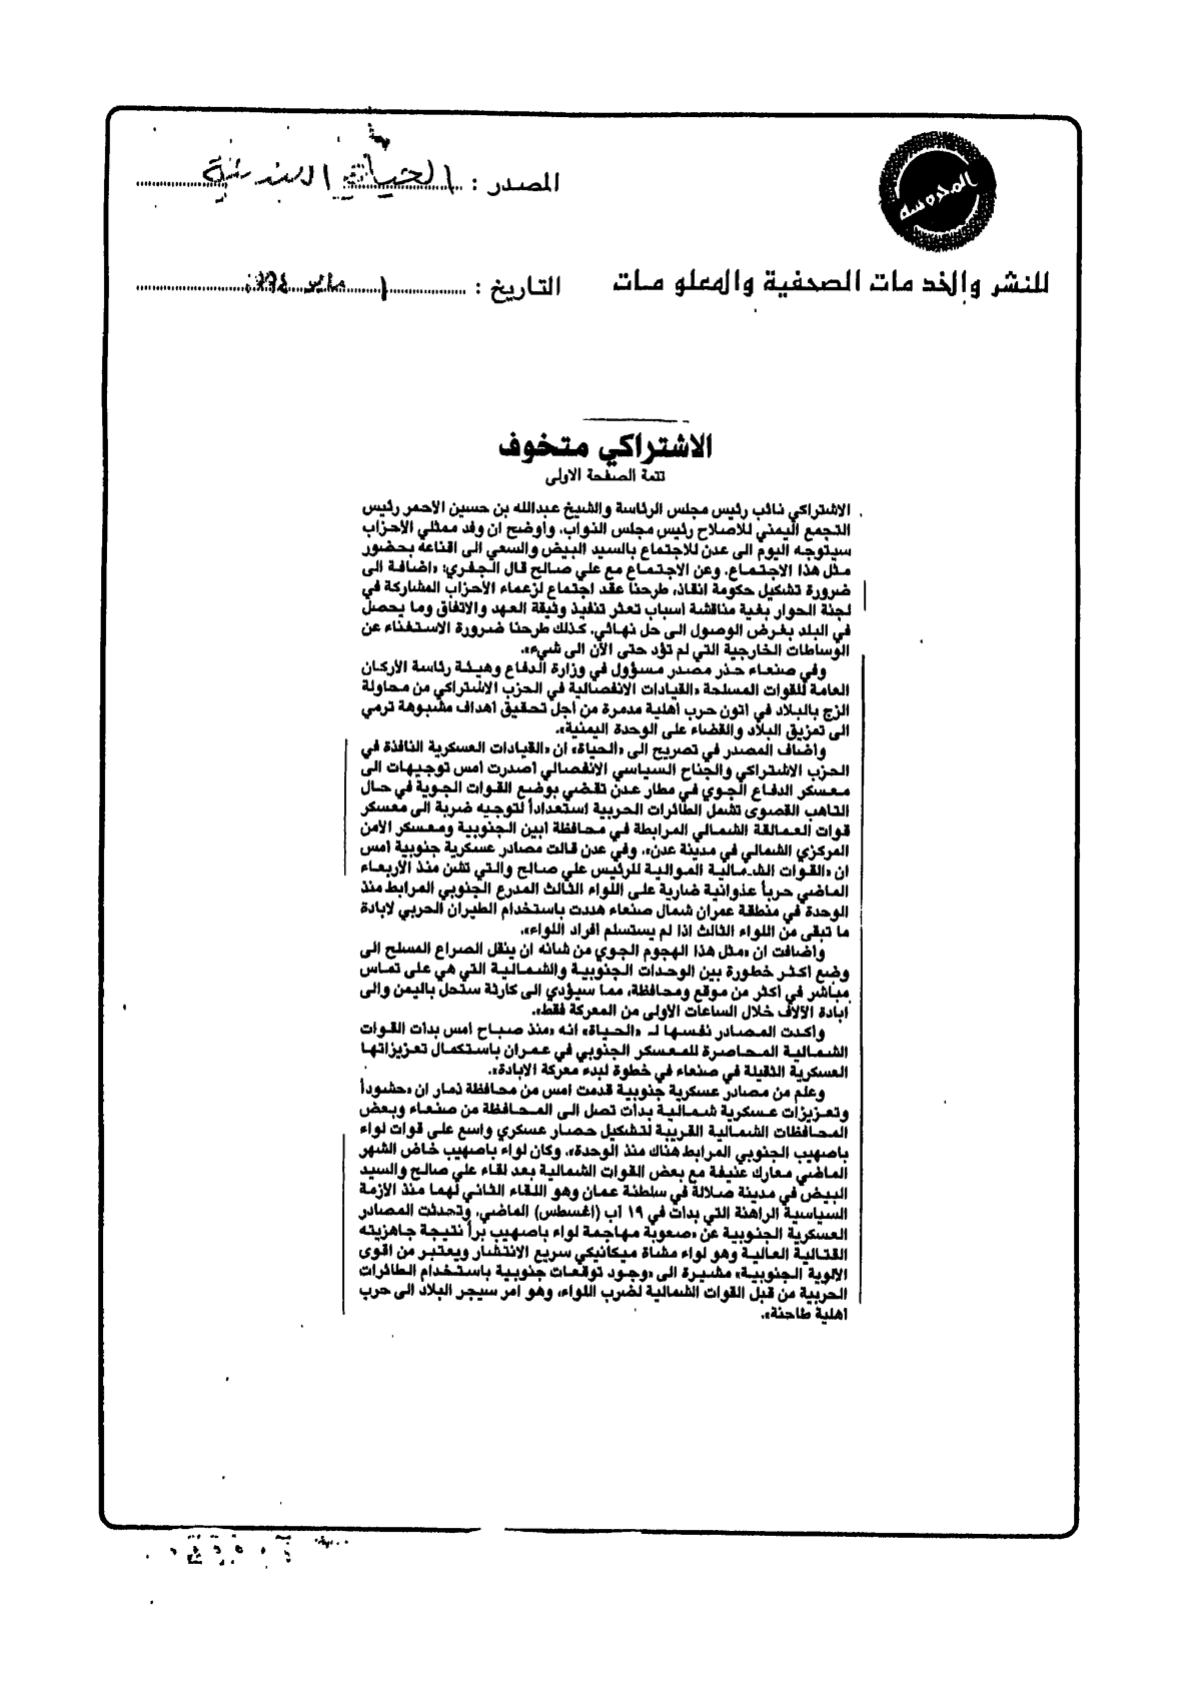 المحروسة
المصدر : الحياة اللندنية
للنشر والخدمات الصحفية والمعلومات
التاريخ : ١ مايو ١٩٩٤
الاشتراكي متخوف
تتمة الصفحة الاولى
الاشتراكي نائب رئيس مجلس الرئاسة والشيخ عبدالله بن حسين الأحمر رئيس
التجمع اليمني للاصلاح رئيس مجلس النواب. وأوضح ان وفد ممثلي الأحزاب
سيتوجه اليوم الى عدن للاجتماع بالسيد البيض والسعي الى اقناعه بحضور
مثل هذا الاجتماع. وعن الاجتماع مع علي صالح قال الجفري: «اضافة الى
ضرورة تشكيل حكومة انقاذ، طرحنا عقد اجتماع لزعماء الأحزاب المشاركة في
لجنة الحوار بغية مناقشة اسباب تعثر تنفيذ وثيقة العهد والاتفاق وما يحصل
في البلد بغرض الوصول الى حل نهائي. كذلك طرحنا ضرورة الاستغناء عن
الوساطات الخارجية التي لم تؤد حتى الآن الى شيء».
وفي صنعاء حذر مصدر مسؤول في وزارة الدفاع وهيئة رئاسة الأركان
العامة للقوات المسلحة «القيادات الانفصالية في الحزب الاشتراكي من محاولة
الزج بالبلاد في اتون حرب أهلية مدمرة من أجل تحقيق أهداف مشبوهة ترمي
الى تمزيق البلاد والقضاء على الوحدة اليمنية».
وأضاف المصدر في تصريح الى «الحياة» ان «القيادات العسكرية النافذة في
الحزب الاشتراكي والجناح السياسي الانفصالي أصدرت أمس توجيهات الى
معسكر الدفاع الجوي في مطار عدن تقضي بوضع القوات الجوية في حال
التاهب القصوى تشمل الطائرات الحربية استعداداً لتوجيه ضربة الى معسكر
قوات العمالقة الشمالي المرابطة في محافظة ابين الجنوبية ومعسكر الأمن
المركزي الشمالي في مدينة عدن». وفي عدن قالت مصادر عسكرية جنوبية أمس
ان «القوات الشمالية الموالية للرئيس علي صالح والتي تشن منذ الأربعاء
الماضي حرباً عدوانية ضارية على اللواء الثالث المدرع الجنوبي المرابط منذ
الوحدة في منطقة عمران شمال صنعاء هددت باستخدام الطيران الحربي لابادة
ما تبقى من اللواء الثالث اذا لم يستسلم أفراد اللواء».
وأضافت ان «مثل هذا الهجوم الجوي من شانه ان ينقل الصراع المسلح الى
وضع أكثر خطورة بين الوحدات الجنوبية والشمالية التي هي على تماس
مباشر في أكثر من موقع ومحافظة، مما سيؤدي الى كارثة ستحل باليمن والى
ابادة الآلاف خلال الساعات الأولى من المعركة فقط».
وأكدت المصادر نفسها لـ «الحياة» انه «منذ صباح أمس بدأت القوات
الشمالية المحاصرة للمعسكر الجنوبي في عمران باستكمال تعزيزاتها
العسكرية الثقيلة في صنعاء في خطوة لبدء معركة الابادة».
وعلم من مصادر عسكرية جنوبية قدمت أمس من محافظة ذمار ان «حشوداً
وتعزيزات عسكرية شمالية بدأت تصل الى المحافظة من صنعاء وبعض
المحافظات الشمالية القريبة لتشكيل حصار عسكري واسع على قوات لواء
باصهيب الجنوبي المرابط هناك منذ الوحدة». وكان لواء باصهيب خاض الشهر
الماضي معارك عنيفة مع بعض القوات الشمالية بعد لقاء علي صالح والسيد
البيض في مدينة صلالة في سلطنة عمان وهو اللقاء الثاني لهما منذ الأزمة
السياسية الراهنة التي بدأت في ١٩ آب (اغسطس) الماضي. وتحدثت المصادر
العسكرية الجنوبية عن «صعوبة مهاجمة لواء باصهيب براً نتيجة جاهزيته
القتالية العالية وهو لواء مشاة ميكانيكي سريع الانتشار ويعتبر من أقوى
الألوية الجنوبية» مشيرة الى «وجود توقعات جنوبية باستخدام الطائرات
الحربية من قبل القوات الشمالية لضرب اللواء، وهو امر سيجر البلاد الى حرب
أهلية طاحنة».